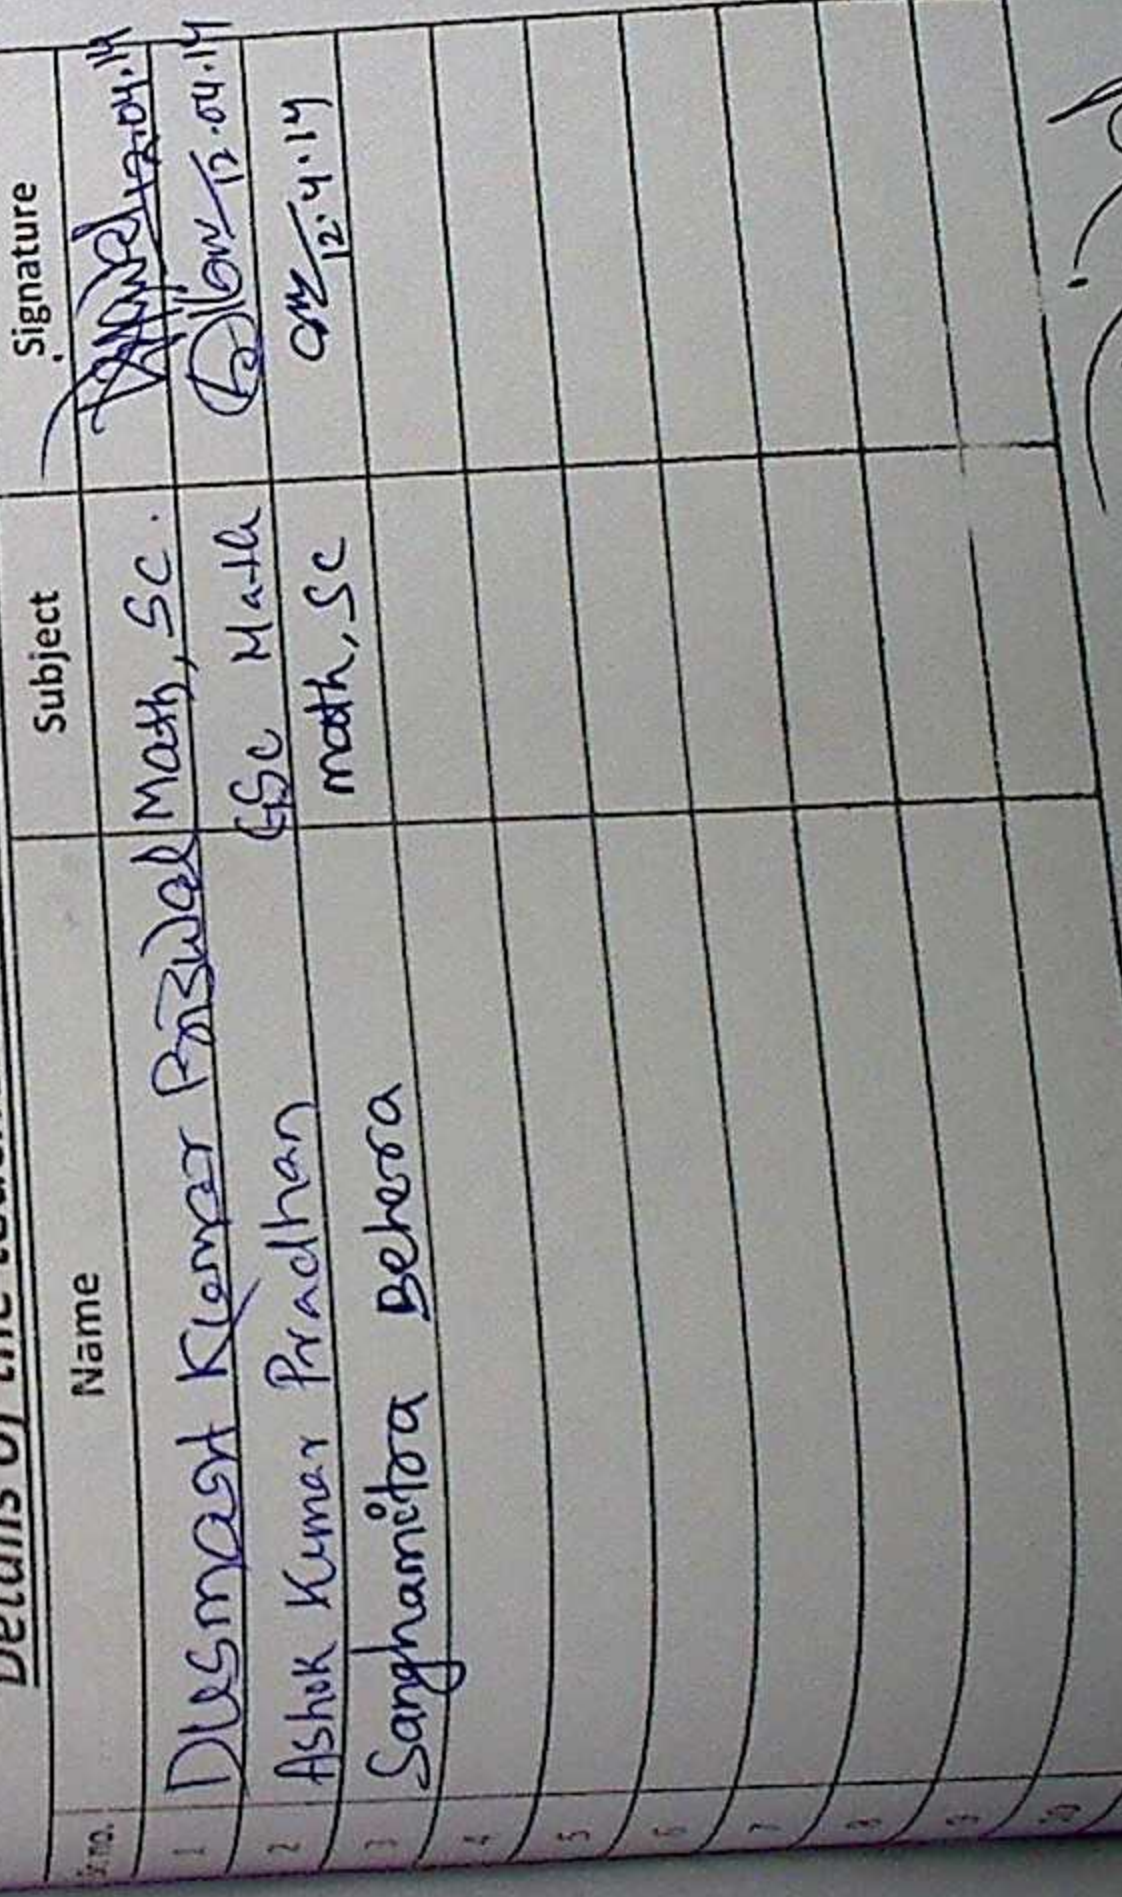 Details of the
Sr no. Name Subject Signature
1 Dusmant Kumar Math, Sc. 12.04.14
2 Ashok Kumar Pradhan G.Sc Math 12.04.14
3 Sanghamitra Behera math, sc 12.4.14
4
5
6
7
8
9
10